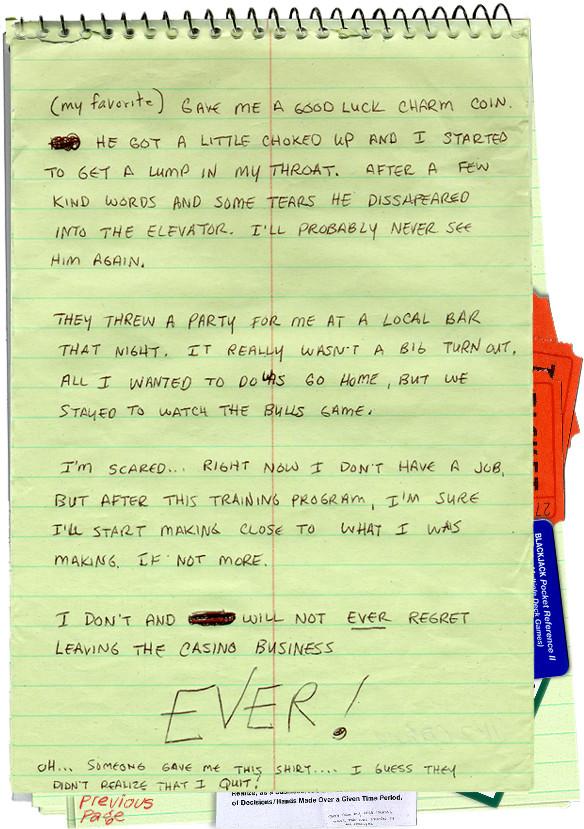 (my favorite) GAVE ME A GOOD LUCK CHARM COIN.
HE GOT A LITTLE CHOKED UP AND I STARTED
TO GET A LUMP IN MY THROAT. AFTER A FEW
KIND WORDS AND SOME TEARS HE DISSAPEARED
INTO THE ELEVATOR. I'LL PROBABLY NEVER SEE
HIM AGAIN.
THEY THREW A PARTY FOR ME AT A LOCAL BAR
THAT NIGHT. IT REALLY WASN'T A BIG TURN OUT.
ALL I WANTED TO DO WAS GO HOME, BUT WE
STAYED TO WATCH THE BULLS GAME.
I'M SCARED... RIGHT NOW I DON'T HAVE A JOB,
BUT AFTER THIS TRAINING PROGRAM, I'M SURE
I'LL START MAKING CLOSE TO WHAT I WAS
MAKING. IF NOT MORE.
I DON'T AND WILL NOT EVER REGRET
LEAVING THE CASINO BUSINESS
EVER!
OH... SOMEONE GAVE ME THIS SHIRT.... I GUESS THEY
DIDN'T REALIZE THAT I QUIT!
Previous
Page
of Decisions/Hands Made Over a Given Time Period.
TICKET
27
BLACKJACK Pocket Reference II
Multiple Deck Games)